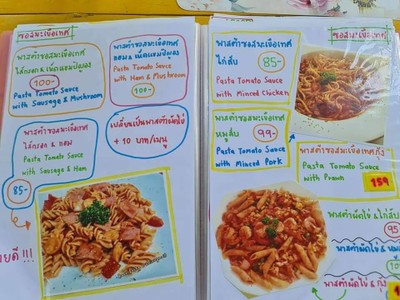 ซอสมะเขือเทศ
พาสต้าซอสมะเขือเทศ
ไส้กรอก & เห็ดแชมปิญอง
100-
Pasta Tomato Sauce
with Sausage & Mushroom
พาสต้าซอสมะเขือเทศ
แฮม & เห็ดแชมปิญอง
Pasta Tomato Sauce
with Ham & Mushroom
100-
พาสต้าซอสมะเขือเทศ
ไส้กรอก & แฮม
Pasta Tomato Sauce
with Sausage & Ham
85-
เปลี่ยนเป็นพาสต้าผักโขม
+ 10 บาท/เมนู
ซอสมะเขือเทศ
พาสต้าซอสมะเขือเทศ
ไก่สับ 85-
Pasta Tomato Sauce
with Minced Chicken
พาสต้าซอสมะเขือเทศ
หมูสับ 99-
Pasta Tomato Sauce
with Minced Pork
พาสต้าซอสมะเขือเทศกุ้ง
Pasta Tomato Sauce
with Prawn 159
พาสต้าผักโขม & ไก่สับ
95
พาสต้าผักโขม &
พาสต้าผักโขม & กุ้ง